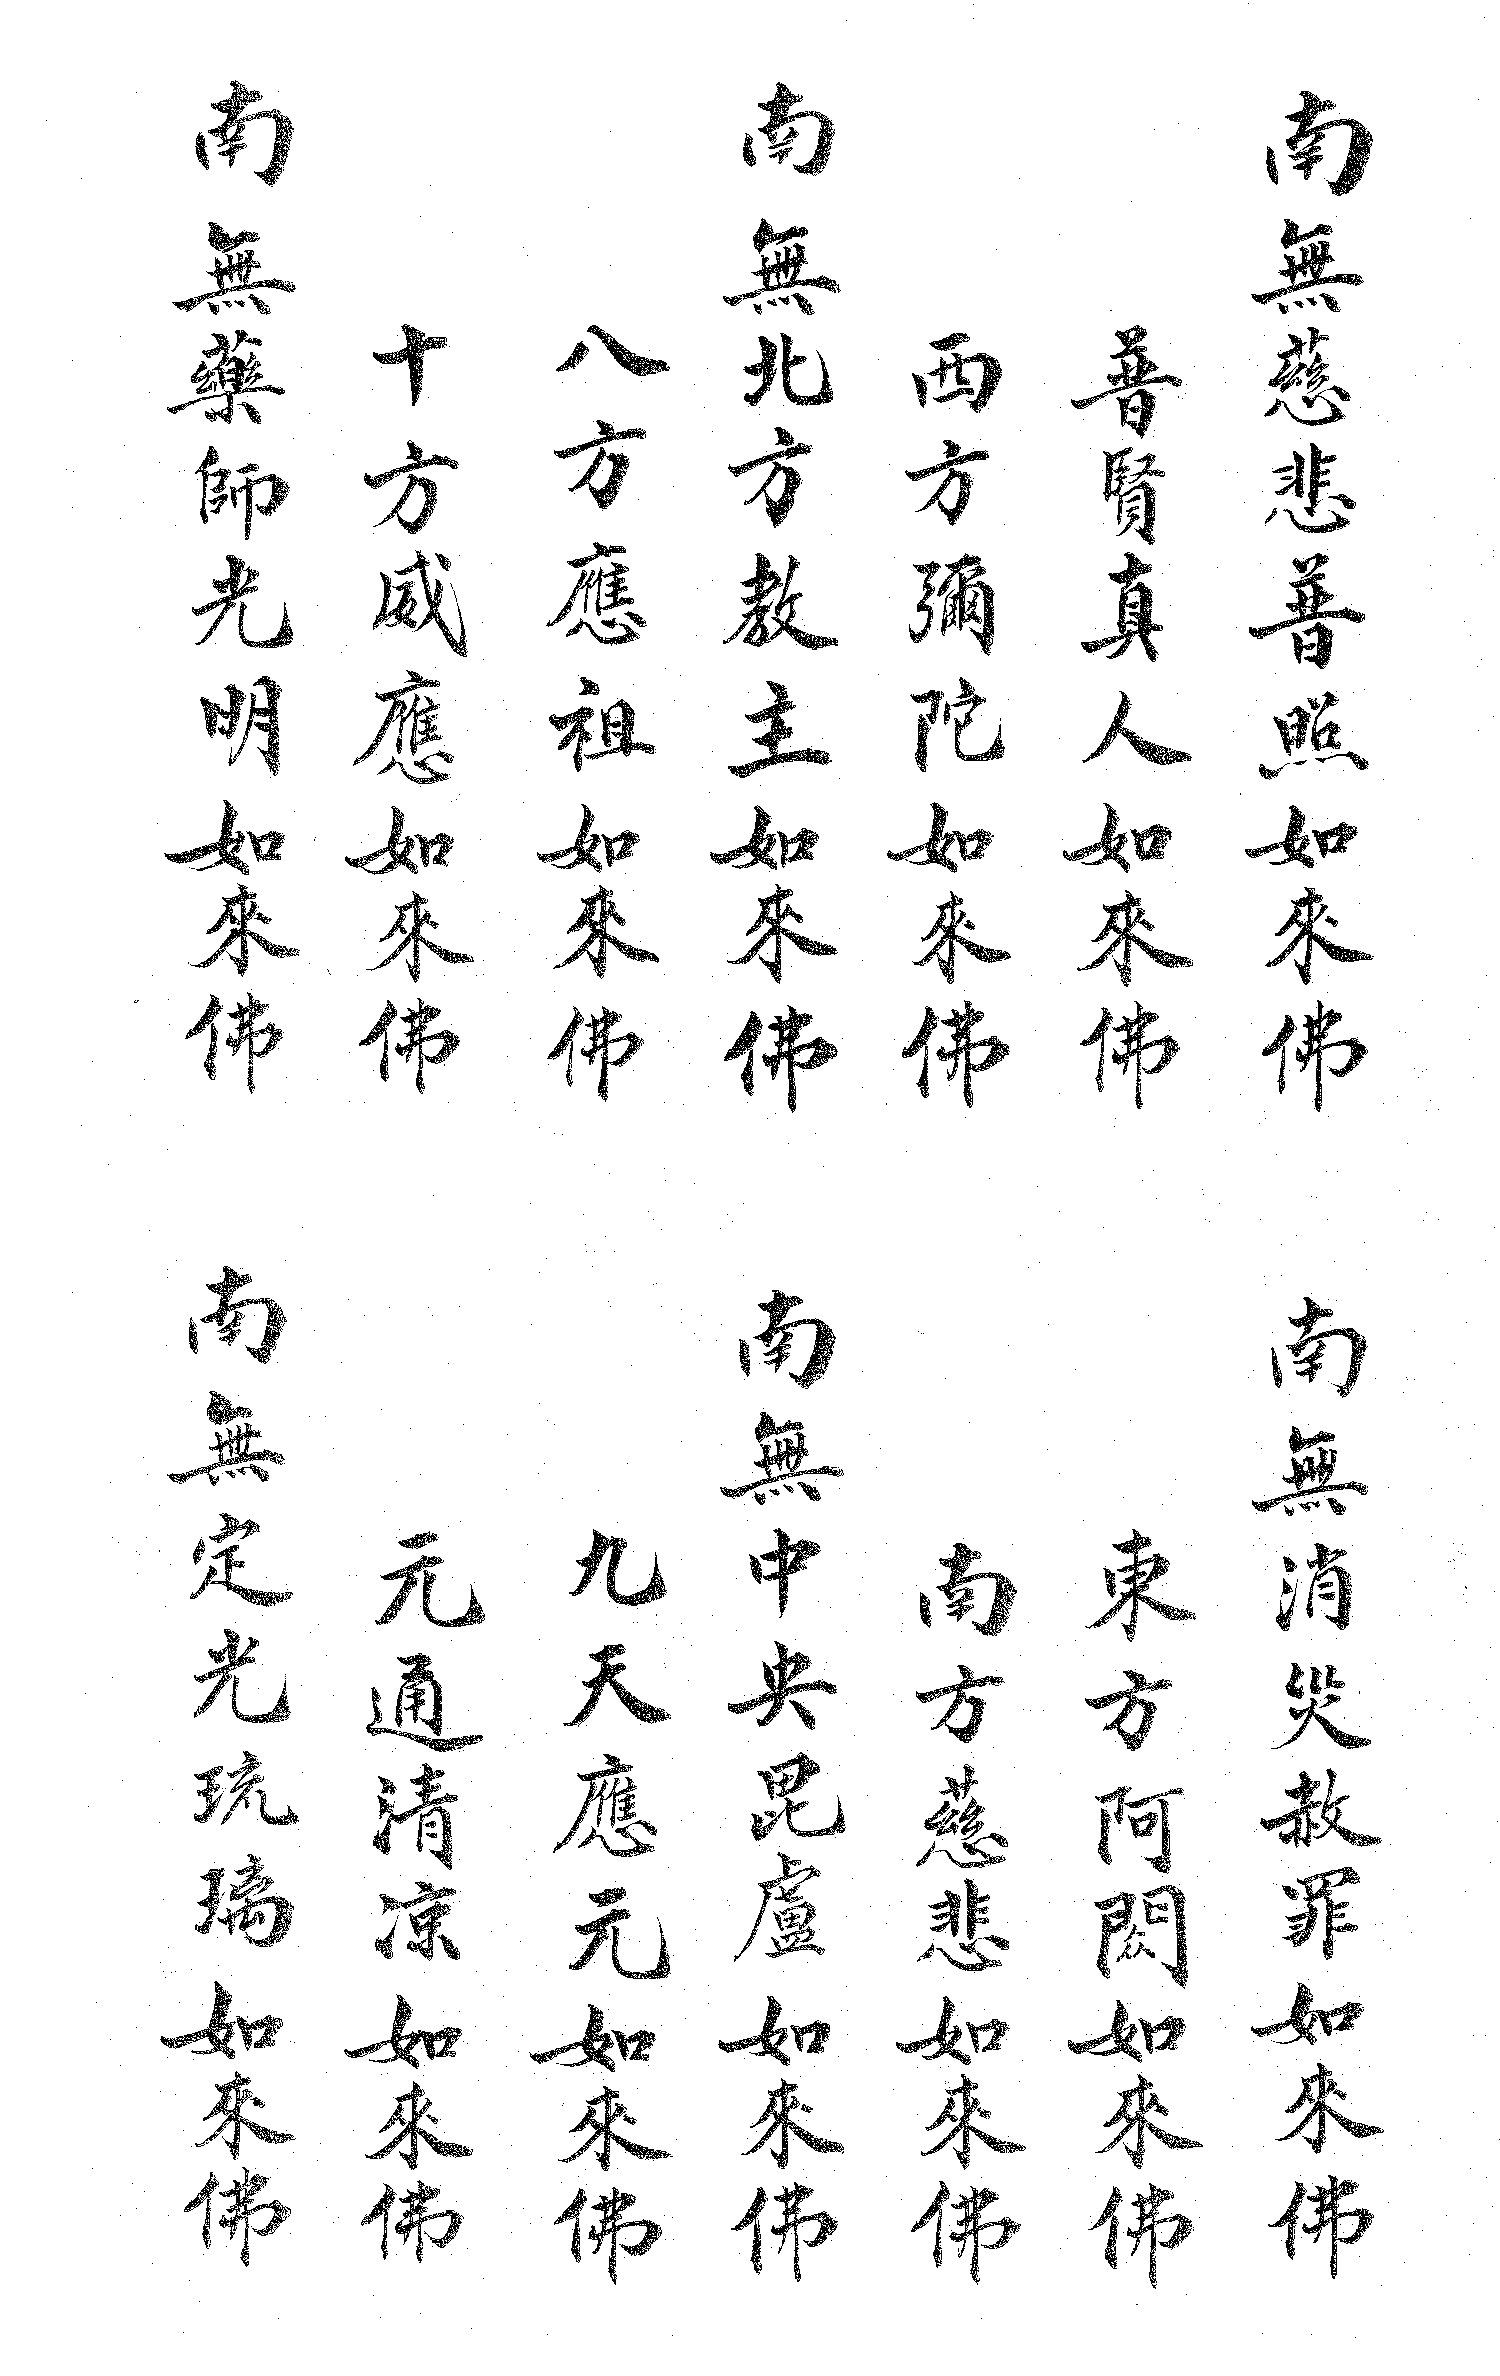 南無慈悲普照如來佛
南無消災赦罪如來佛
普賢真人如來佛
東方阿閦如來佛
西方彌陀如來佛
南方慈悲如來佛
南無北方教主如來佛
南無中央毘盧如來佛
八方應祖如來佛
九天應元如來佛
十方威應如來佛
元通清凉如來佛
南無藥師光明如來佛
南無定光琉璃如來佛